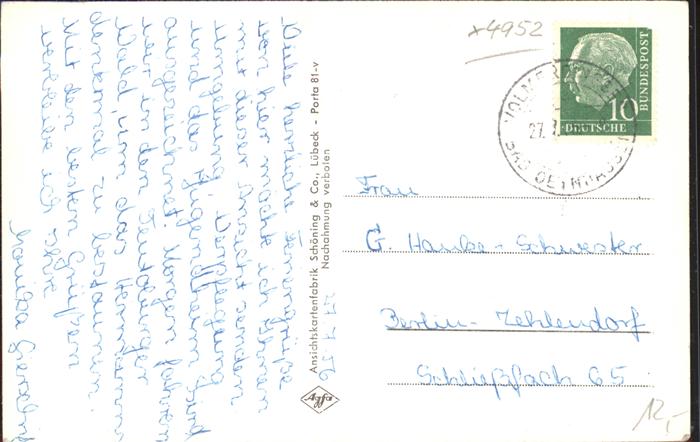 *4952
BUNDESPOST
10
DEUTSCHE
27.
BAD OEYNHAUSEN
Viele herzliche Feriengrüße
von hier möchte ich Ihnen
mit dieser Ansicht senden.
Umgebung, Verpflegung
und das Jugendheim sind
ausgezeichnet. Morgen fahren
wir in den Teutoburger
Wald, um das Hermanns-
denkmal zu bestaunen.
Mit den besten Grüßen
verbleibe ich Ihre
Monika
Ansichtskartenfabrik Schöning & Co., Lübeck - Porta 81-v
Nachahmung verboten
27.7.56
Agfa
Frau
G. Haube-Schwester
Berlin-Zehlendorf
Schließfach 65
12,-